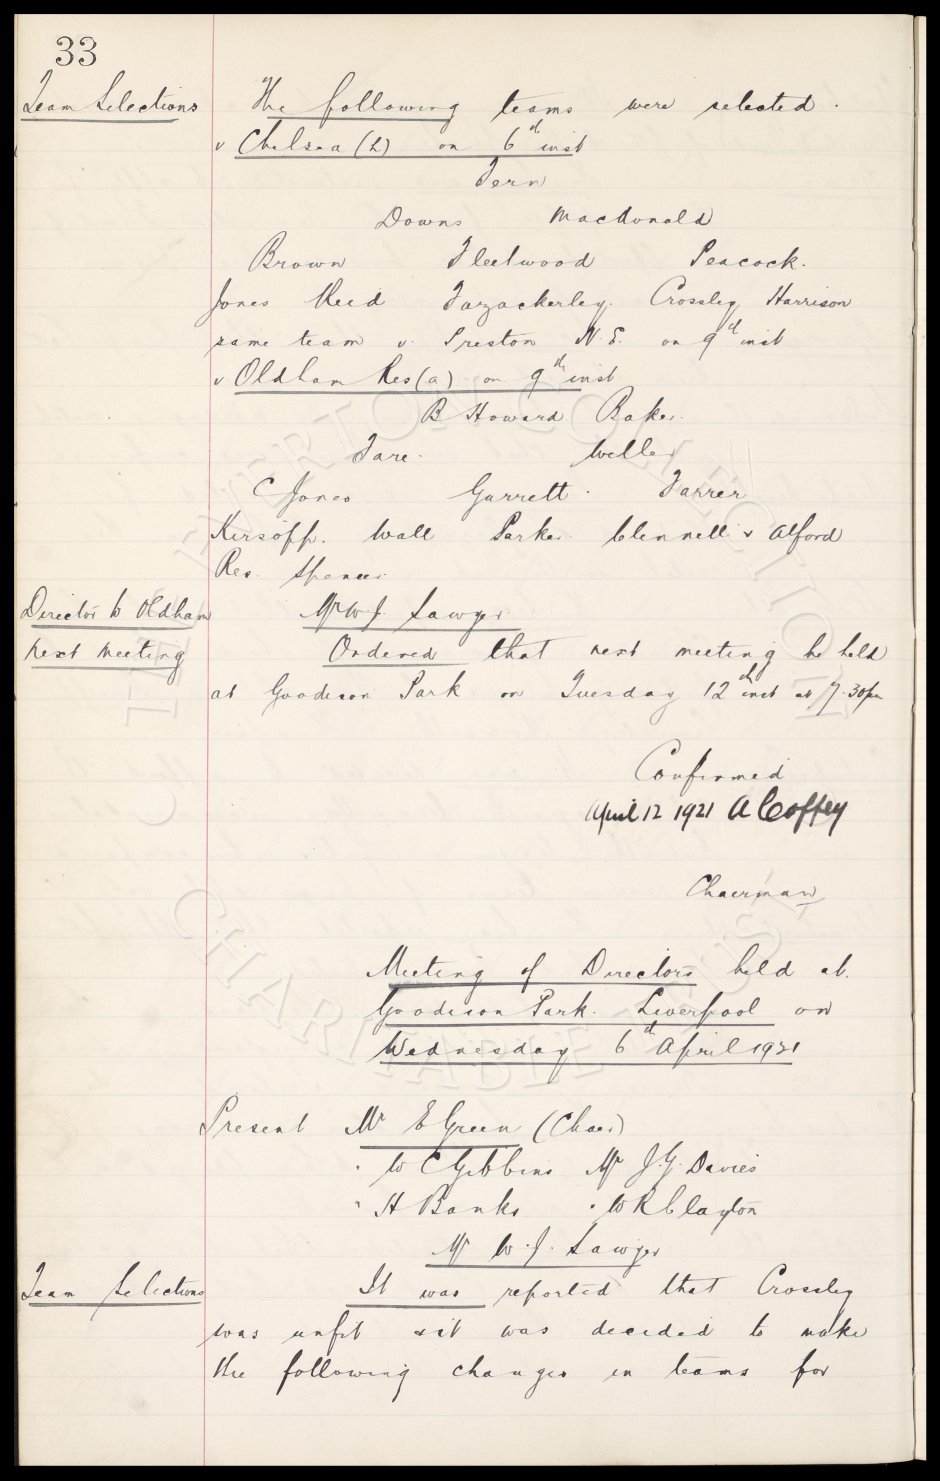 33
Team Selections The following teams were selected.
v Chelsea (h) on 6th inst
Fern
Downs MacDonald
Brown Fleetwood Peacock.
Jones Reid Fazackerley. Crossley Harrison
same team v. Preston N.E. on 9th inst
v Oldham Res (a) on 9th inst
B Howard Baker.
Fare. Weller
C Jones Garrett. Farrer
Kirsopp. Wall Parker. Clennell & Alford
Res. Spencer
Director to Oldham Mr W.J. Sawyer
next meeting Ordered that next meeting be held
at Goodison Park on Tuesday 12th inst at 7.30pm
Confirmed
April 12 1921 A Coffey
Chairman
Meeting of Directors held at
Goodison Park. Liverpool on
Wednesday 6th April 1921
Present Mr E Green (Chair)
" W C Gibbins Mr J.G. Davies
" H Banks " W R Clayton
Mr W.J. Sawyer
Team Selections It was reported that Crossley
was unfit & it was decided to make
the following changes in teams for
THE EVERTON COLLECTION
CHARITABLE TRUST